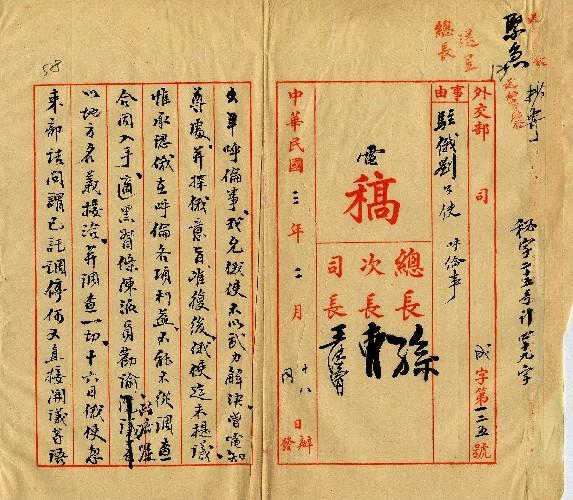 緊急
送呈
總長
外交部 司
事由
駐俄劉公使 呼倫事
電
稿
總長 孫
次長 曹
司長
中華民國三年二月十八日辦發
成字第一二五號
呼倫事我允俄使不以武力解決曾電知
尊處並探俄意旨准復後俄使迄未提議
惟承認俄在呼倫各項利益不能不從調查
合同入手適黑督條陳派員勸諭
以地方名義接洽並調查一切十六日俄使忽
來部詰問謂已託調停何又直接開議等語
58